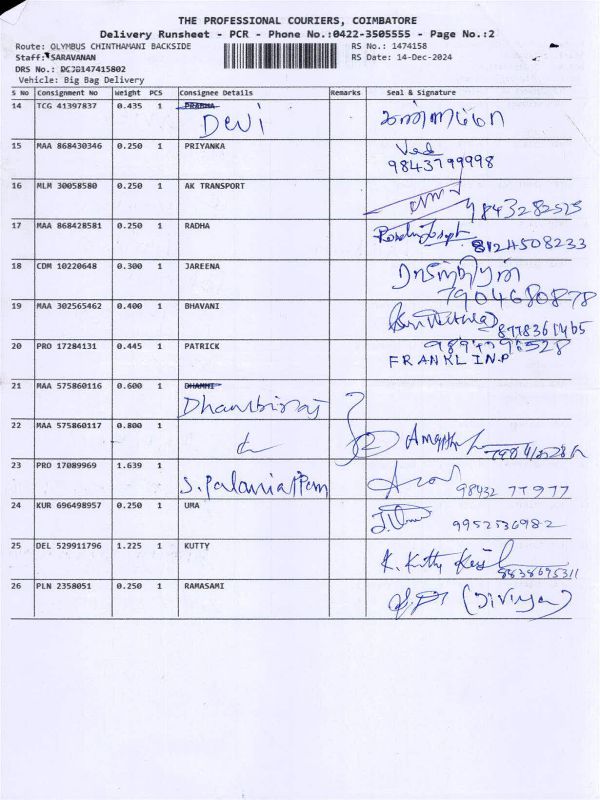 THE PROFESSIONAL COURIERS, COIMBATORE
Delivery Runsheet - PCR - Phone No.:0422-3505555 - Page No.:2
Route: OLYMBUS CHINTHAMANI BACKSIDE RS No.: 1474158
Staff: SARAVANAN RS Date: 14-Dec-2024
DRS No.: 147415802
Vehicle: Big Bag Delivery
S No Consignment No Weight PCS Consignee Details Remarks Seal & Signature
14 TCG 41397837 0.435 1 PRABHA
Devi
15 MAA 868430346 0.250 1 PRIYANKA
9843799998
16 MLM 30058580 0.250 1 AK TRANSPORT
9843282523
17 MAA 868428581 0.250 1 RADHA
8124508233
18 CDM 10220648 0.300 1 JAREENA
7904680878
19 MAA 302565462 0.400 1 BHAVANI
8778361465
20 PRO 17284131 0.445 1 PATRICK
FRANKLIN.P
21 MAA 575860116 0.600 1 DHAMMI
Dhambiraj
22 MAA 575860117 0.800 1
23 PRO 17089969 1.639 1
S. Palaniappan
98432 77977
24 KUR 696498957 0.250 1 UMA
9952536982
25 DEL 529911796 1.225 1 KUTTY
K. Kutty
8838695311
26 PLN 2358051 0.250 1 RAMASAMI
(Divya)